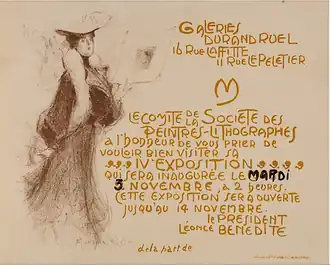 GALERIES
DURAND RUEL
16 RUE LAFFITTE
11 RUE LE PELETIER
LE COMITE DE LA SOCIETE DES
PEINTRES-LITHOGRAPHES
A L'HONNEUR DE VOUS PRIER DE
VOULOIR BIEN VISITER SA
V EXPOSITION
QUI SERA INAUGUREE LE MARDI
3 NOVEMBRE, A 2 HEURES.
CETTE EXPOSITION SERA OUVERTE
JUSQU'AU 14 NOVEMBRE.
LE PRESIDENT
LÉONCE BENEDITE
de la part de